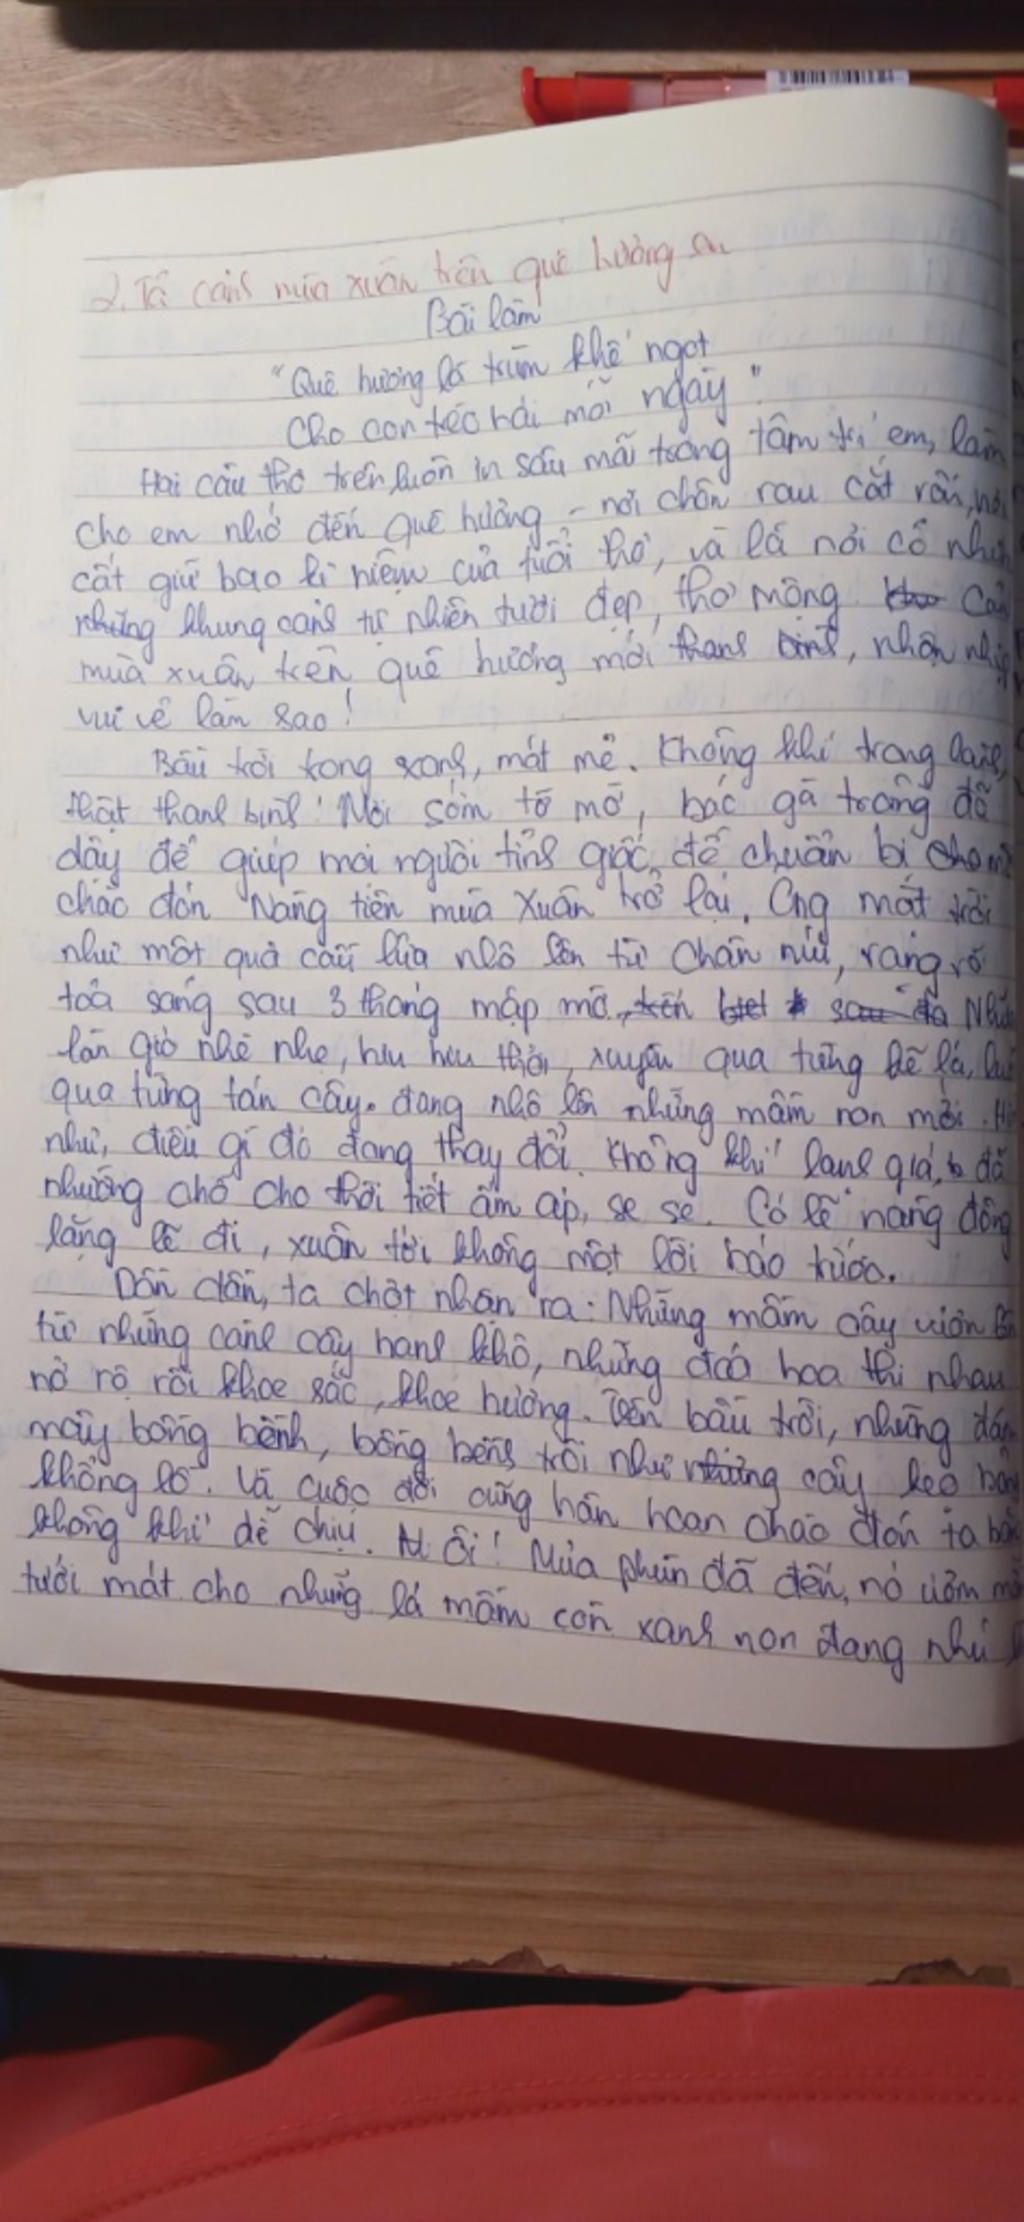 2. Tả cảnh mùa xuân trên quê hương em
Bài làm
"Quê hương là chùm khế ngọt
Cho con trèo hái mỗi ngày"
Hai câu thơ trên luôn in sâu mãi trong tâm trí em, làm
cho em nhớ đến quê hương - nơi chôn rau cắt rốn, nơi
cất giữ bao kỉ niệm của tuổi thơ, và là nơi có
những khung cảnh tự nhiên tươi đẹp, thơ mộng.
mùa xuân trên quê hương mới thanh bình, nhộn nhịp
vui vẻ làm sao!
Bầu trời trong xanh, mát mẻ. Không khí trong lành,
thật thanh bình! Mới sớm tờ mờ, bác gà trống đã
dậy để giúp mọi người tỉnh giấc, để chuẩn bị
chào đón Nàng tiên mùa Xuân trở lại. Ông mặt trời
như một quả cầu lửa nhô lên từ chân núi, rạng rỡ
toả sáng sau 3 tháng mập mờ.
làn gió nhè nhẹ, hiu hiu thổi, xuyên qua từng kẽ lá,
qua từng tán cây đang nhô lên những mầm non mới.
như, điều gì đó đang thay đổi. Không khí lạnh giá, đã
nhường chỗ cho thời tiết ấm áp, se se. Có lẽ nàng đông
lặng lẽ đi, xuân tới không một lời báo trước.
Dần dần, ta chợt nhận ra: Những mầm cây vươn lên
từ những cành cây hanh khô, những đoá hoa thi nhau
nở rộ rồi khoe sắc, khoe hương. Trên bầu trời, những đám
mây bồng bềnh, bồng bềnh trôi như những cây kẹo bông
khổng lồ. Và cuộc đời cũng hân hoan chào đón ta bằng
không khí dễ chịu. Ôi! Mưa phùn đã đến, nó ươm
tưới mát cho những lá mầm còn xanh non đang nhú